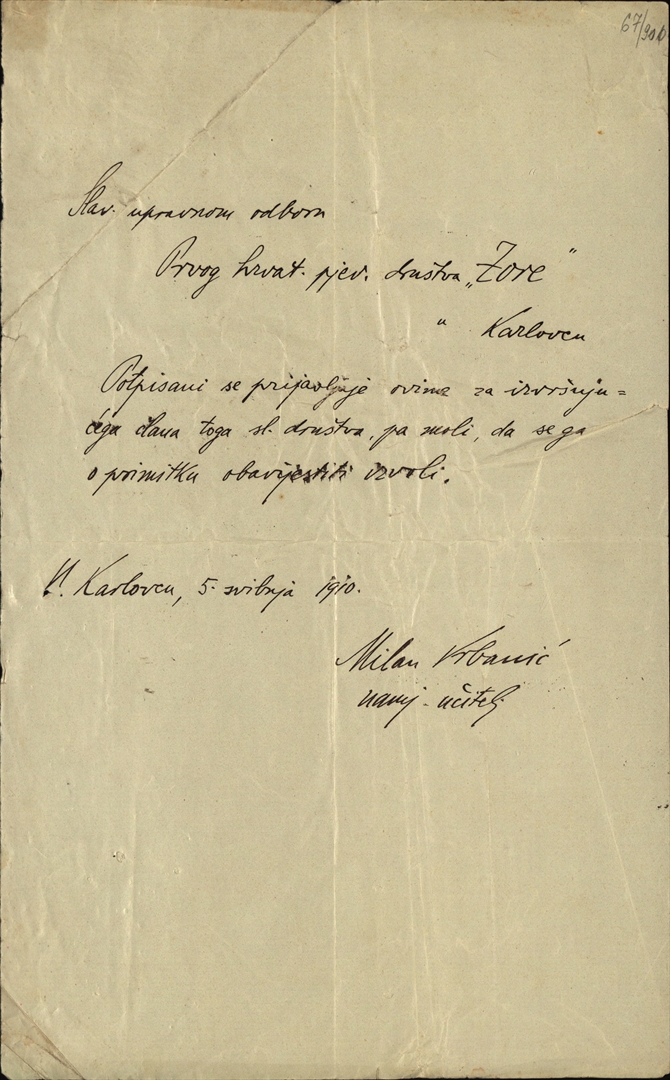 67/910
Slav. upravnom odboru
Prvog hrvat. pjev. društva „Zore"
u Karlovcu
Potpisani se prijavljuje ovime za izvršuju=
ćega člana toga sl. društva, pa moli, da se ga
o primitku obavijestiti izvoli.
U Karlovcu, 5. svibnja 1910.
Milan Vrbanić
namj. učitelj